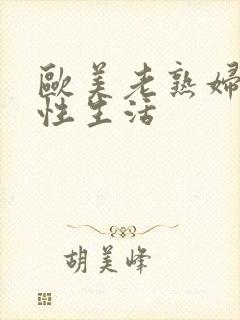 歐美老熟婦
性生活
胡美峰